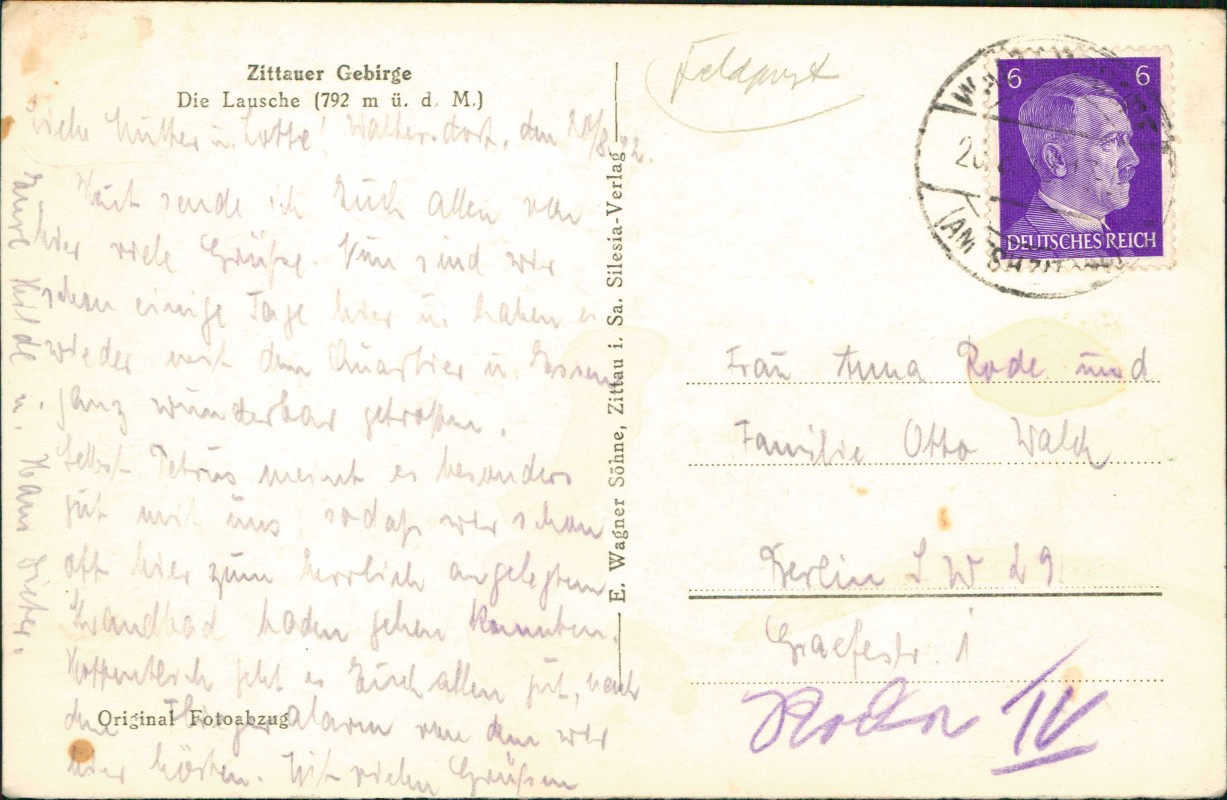 Zittauer Gebirge
Die Lausche (792 m ü. d. M.)
Liebe Mutter u. Lotte! Waltersdorf, den 20/8. 42.
Heut sende ich Euch allen von
hier viele Grüße. Nun sind wir
schon einige Tage hier u. haben es
wieder mit dem Quartier u. Essen
ganz wunderbar getroffen.
Selbst Petrus meint es besonders
gut mit uns, sodaß wir schon
oft hier zum herrlich angelegtem
Strandbad baden gehen konnten.
Hoffentlich geht es Euch allen gut, nach
dem Fliegeralarm von dem wir
hier hörten. Mit vielen Grüßen
Eure Hilde u. Hans Dieter.
Original Fotoabzug
E. Wagner Söhne, Zittau i. Sa. Silesia-Verlag
Feldpost
6 6
DEUTSCHES REICH
Frau Anna Rode und
Familie Otto Walch
Berlin S W 29
Graefestr. 1
IV